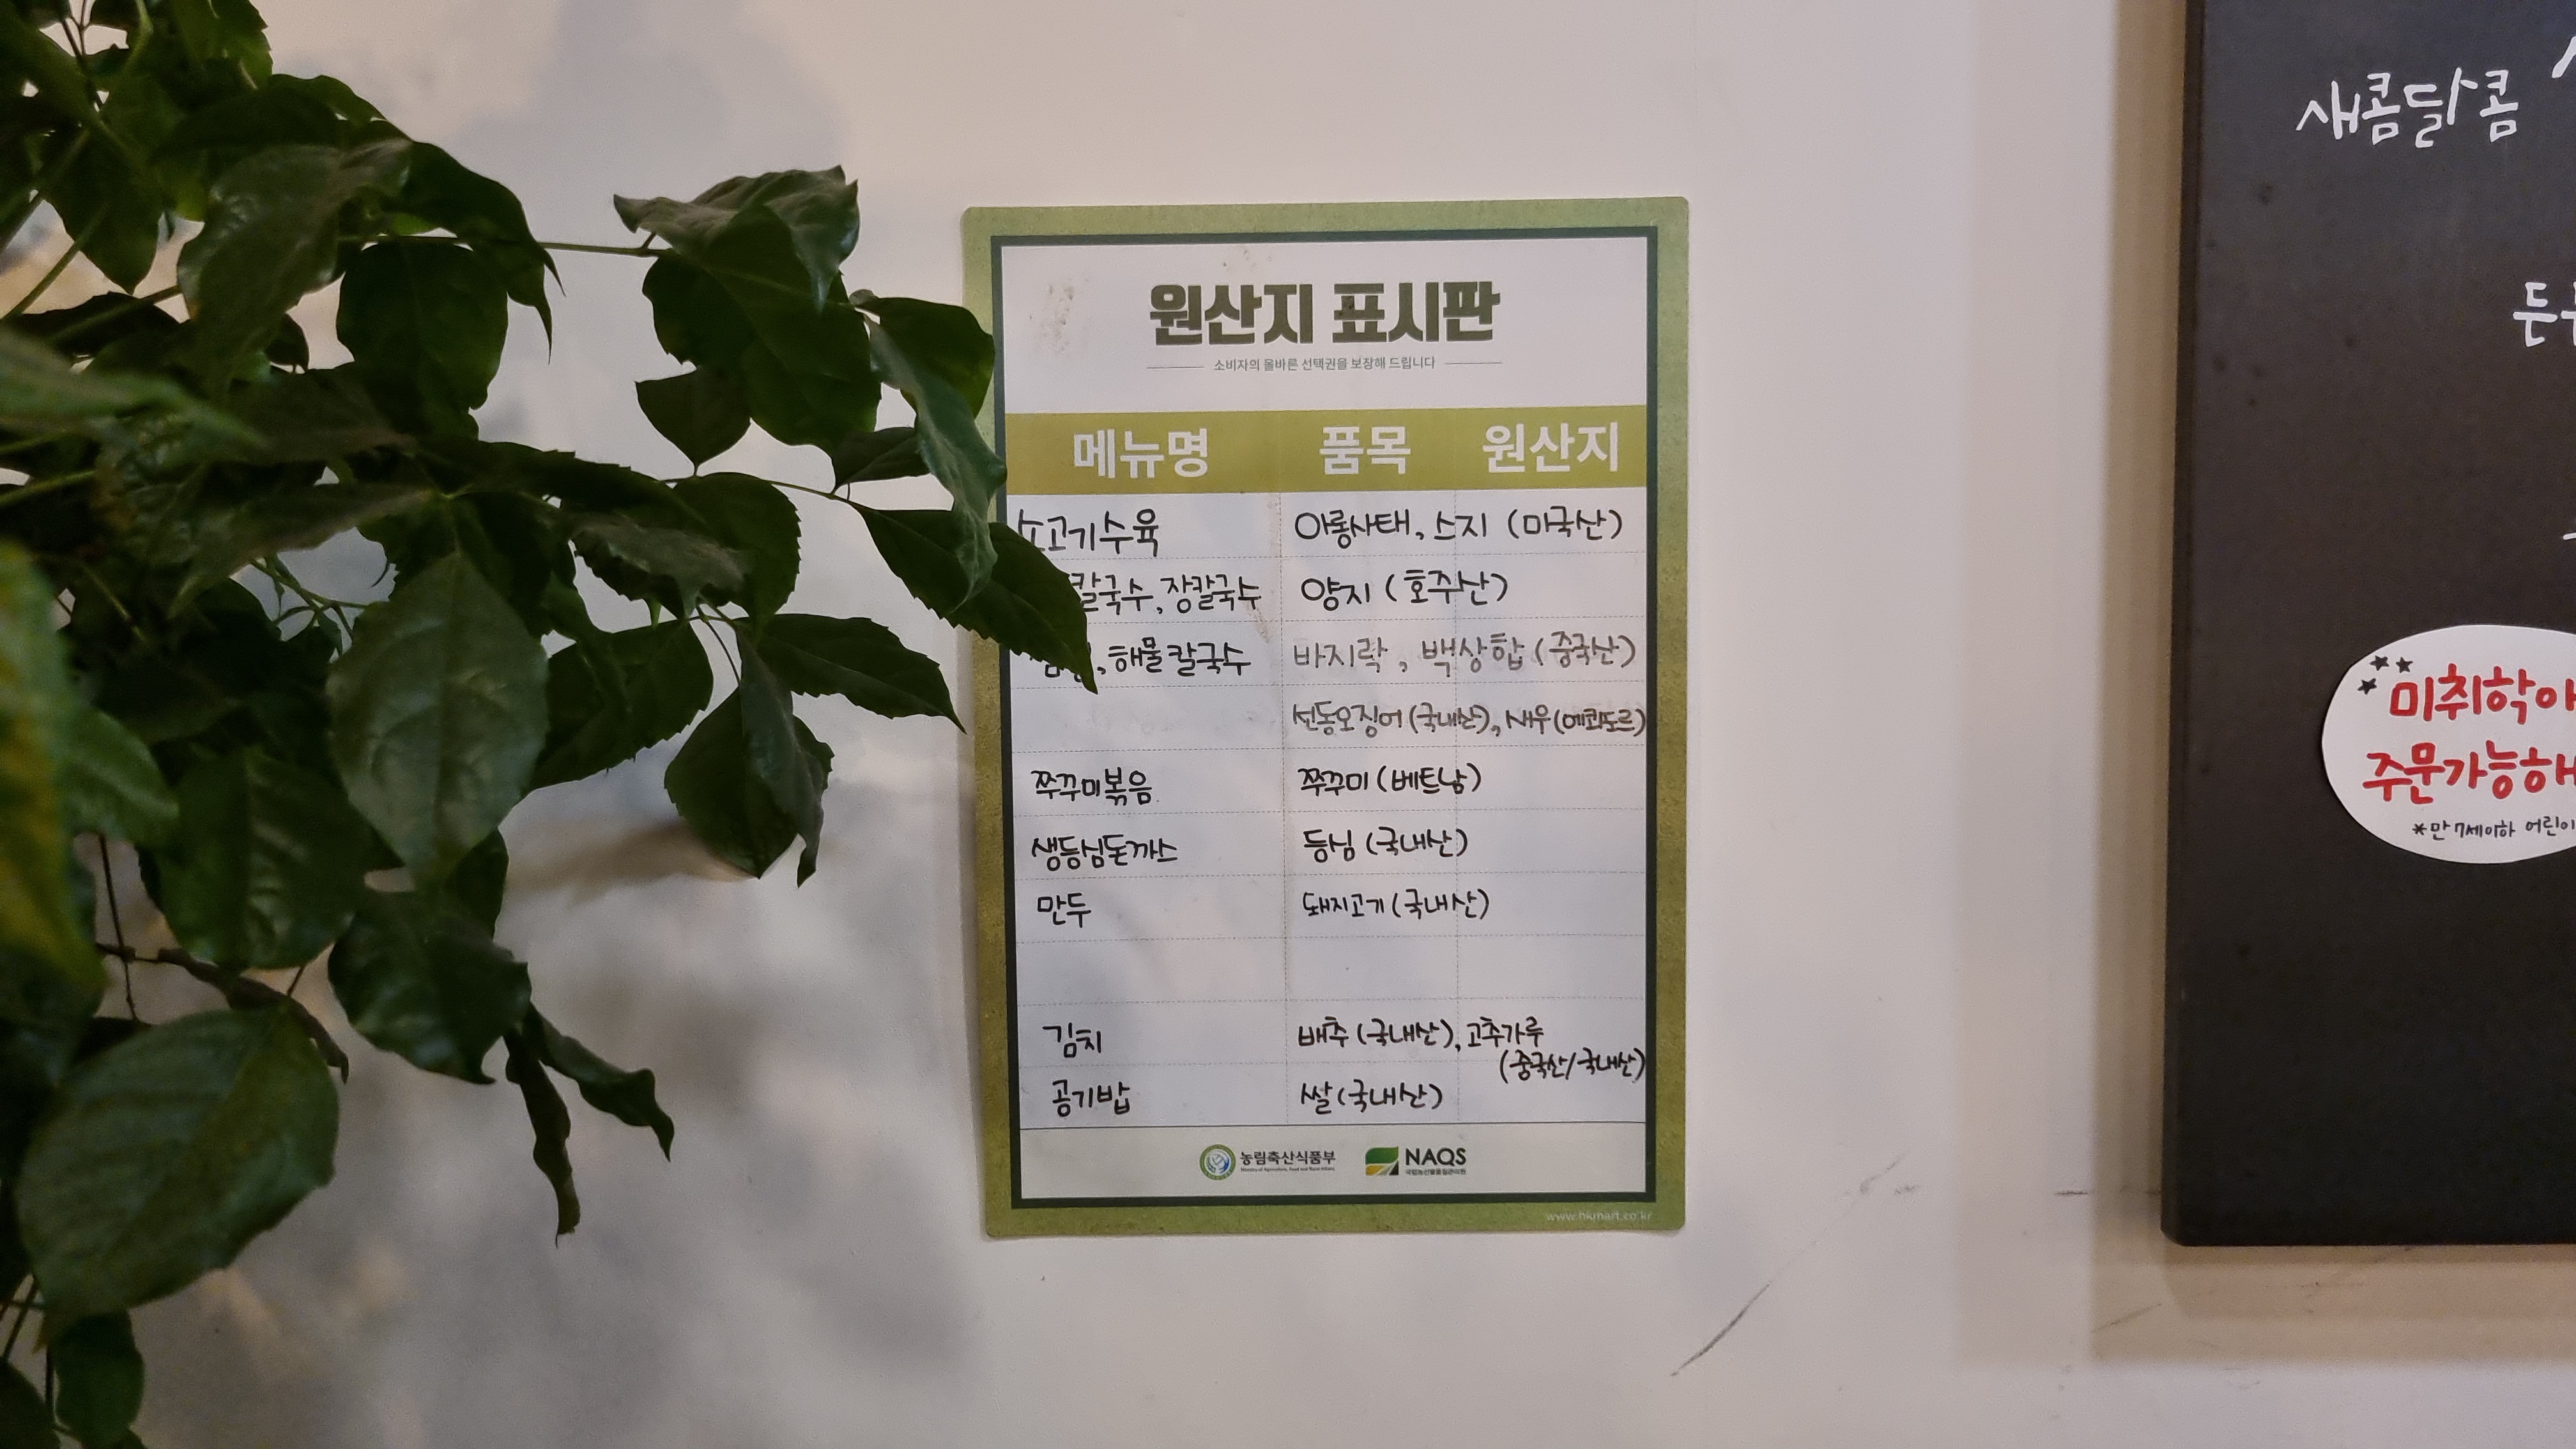 원산지 표시판
소비자의 올바른 선택권을 보장해 드립니다
메뉴명 품목 원산지
소고기수육 아롱사태, 스지 (미국산)
칼국수, 장칼국수 양지 (호주산)
해물칼국수 바지락, 백상합 (중국산)
선동오징어 (국내산), 새우 (에콰도르)
쭈꾸미볶음 쭈꾸미 (베트남)
생등심돈까스 등심 (국내산)
만두 돼지고기 (국내산)
김치 배추 (국내산), 고추가루
(중국산/국내산)
공기밥 쌀 (국내산)
농림축산식품부
NAQS
국립농산물품질관리원
www.hkmart.co.kr
새콤달콤
미취학아
주문가능해
*만 7세이하 어린이